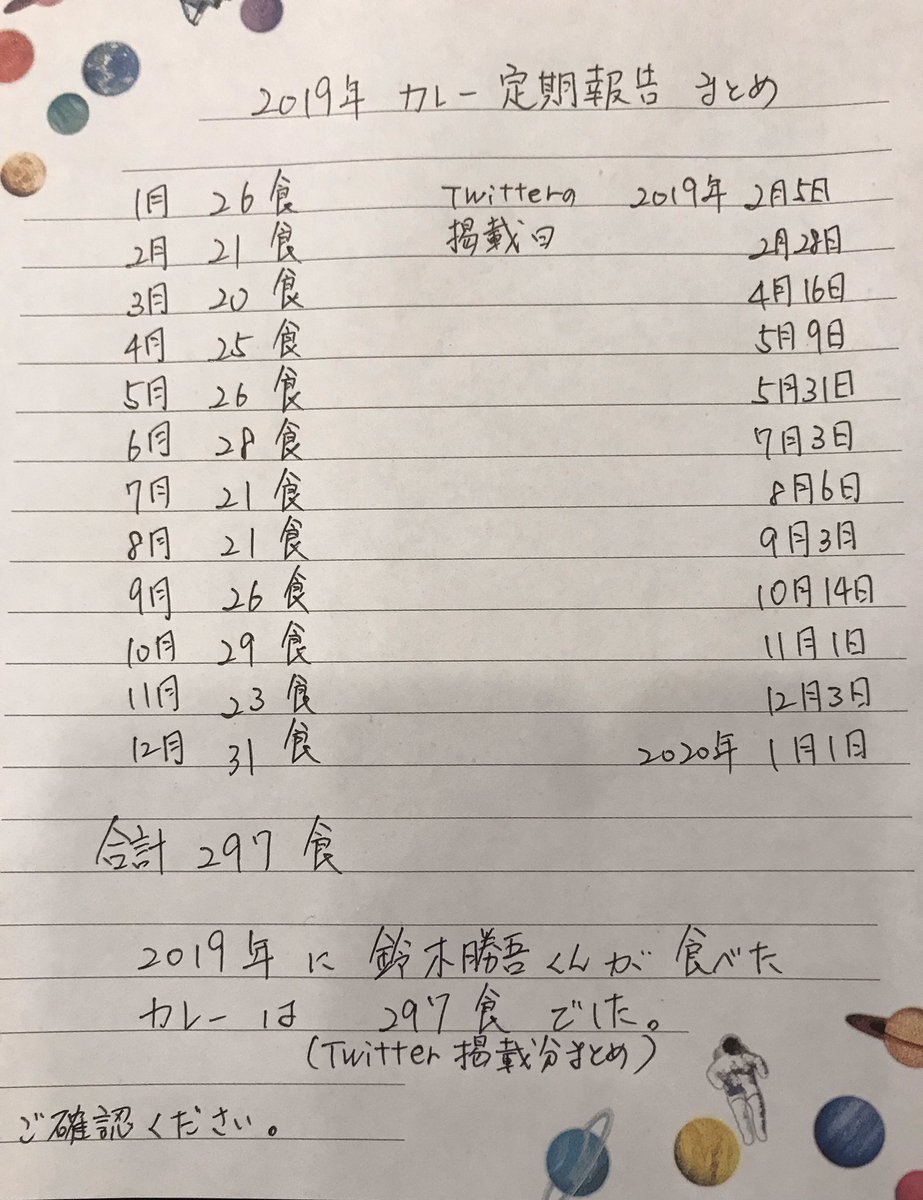 2019年 カレー定期報告 まとめ
1月 26食 Twitterの 2019年 2月5日
2月 21食 掲載日 2月28日
3月 20食 4月16日
4月 25食 5月9日
5月 26食 5月31日
6月 28食 7月3日
7月 21食 8月6日
8月 21食 9月3日
9月 26食 10月14日
10月 29食 11月1日
11月 23食 12月3日
12月 31食 2020年 1月1日
合計 297食
2019年に 鈴木勝吾くんが 食べた
カレーは 297食 でした。
(Twitter掲載分まとめ)
ご確認ください。